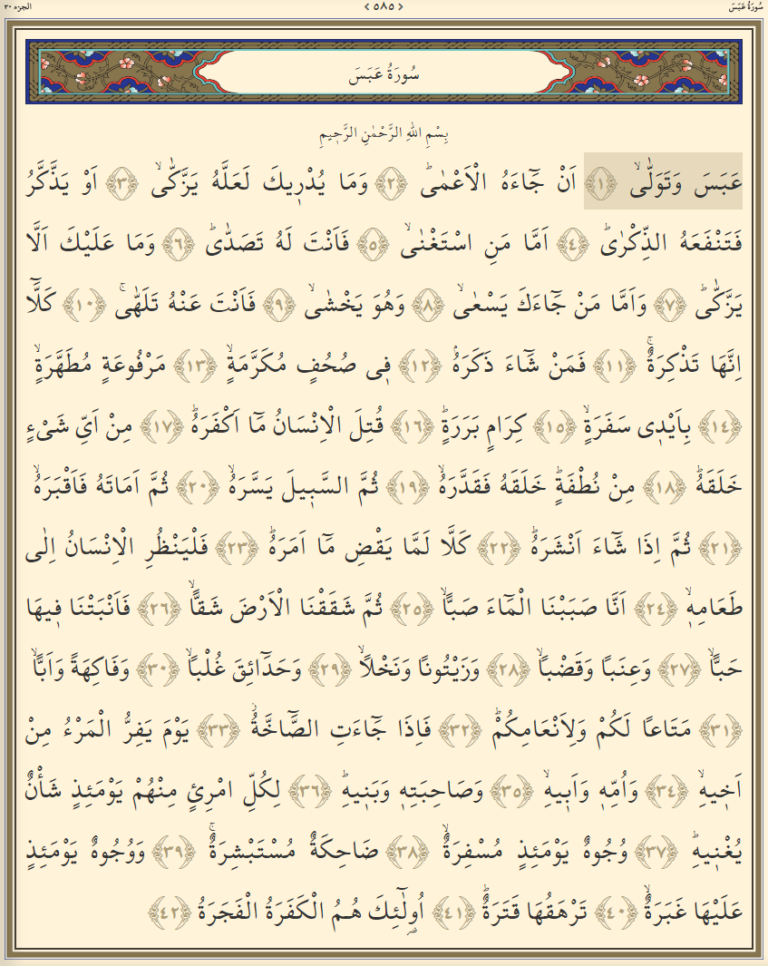 سُورَةُ عَبَسَ
﴿٥٨٥﴾
الجزء ٣٠
سُورَةُ عَبَسَ
بِسْمِ اللّٰهِ الرَّحْمٰنِ الرَّحٖيمِ
عَبَسَ وَتَوَلّٰىۙ ﴿١﴾ اَنْ جَٓاءَهُ الْاَعْمٰىؕ ﴿٢﴾ وَمَا يُدْرٖيكَ لَعَلَّهُ يَزَّكّٰىۙ ﴿٣﴾ اَوْ يَذَّكَّرُ
فَتَنْفَعَهُ الذِّكْرٰىؕ ﴿٤﴾ اَمَّا مَنِ اسْتَغْنٰىۙ ﴿٥﴾ فَاَنْتَ لَهُ تَصَدّٰىؕ ﴿٦﴾ وَمَا عَلَيْكَ اَلَّا
يَزَّكّٰىؕ ﴿٧﴾ وَاَمَّا مَنْ جَٓاءَكَ يَسْعٰىۙ ﴿٨﴾ وَهُوَ يَخْشٰىۙ ﴿٩﴾ فَاَنْتَ عَنْهُ تَلَهّٰىۚ ﴿١٠﴾ كَلَّٓا
اِنَّهَا تَذْكِرَةٌۚ ﴿١١﴾ فَمَنْ شَٓاءَ ذَكَرَهُۢ ﴿١٢﴾ فٖى صُحُفٍ مُكَرَّمَةٍۙ ﴿١٣﴾ مَرْفُوعَةٍ مُطَهَّرَةٍۙ
﴿١٤﴾ بِاَيْدٖى سَفَرَةٍۙ ﴿١٥﴾ كِرَامٍ بَرَرَةٍؕ ﴿١٦﴾ قُتِلَ الْاِنْسَانُ مَٓا اَكْفَرَهُؕ ﴿١٧﴾ مِنْ اَىِّ شَىْءٍ
خَلَقَهُؕ ﴿١٨﴾ مِنْ نُطْفَةٍؕ خَلَقَهُ فَقَدَّرَهُۙ ﴿١٩﴾ ثُمَّ السَّبٖيلَ يَسَّرَهُۙ ﴿٢٠﴾ ثُمَّ اَمَاتَهُ فَاَقْبَرَهُۙ
﴿٢١﴾ ثُمَّ اِذَا شَٓاءَ اَنْشَرَهُؕ ﴿٢٢﴾ كَلَّا لَمَّا يَقْضِ مَٓا اَمَرَهُؕ ﴿٢٣﴾ فَلْيَنْظُرِ الْاِنْسَانُ اِلٰى
طَعَامِهٖۙ ﴿٢٤﴾ اَنَّا صَبَبْنَا الْمَٓاءَ صَبًّاۙ ﴿٢٥﴾ ثُمَّ شَقَقْنَا الْاَرْضَ شَقًّاۙ ﴿٢٦﴾ فَاَنْبَتْنَا فٖيهَا
حَبًّاۙ ﴿٢٧﴾ وَعِنَبًا وَقَضْبًاۙ ﴿٢٨﴾ وَزَيْتُونًا وَنَخْلًاۙ ﴿٢٩﴾ وَحَدَٓائِقَ غُلْبًاۙ ﴿٣٠﴾ وَفَاكِهَةً وَاَبًّاۙ
﴿٣١﴾ مَتَاعًا لَكُمْ وَلِاَنْعَامِكُمْؕ ﴿٣٢﴾ فَاِذَا جَٓاءَتِ الصَّٓاخَّةُۘ ﴿٣٣﴾ يَوْمَ يَفِرُّ الْمَرْءُ مِنْ
اَخٖيهِۙ ﴿٣٤﴾ وَاُمِّهٖ وَاَبٖيهِۙ ﴿٣٥﴾ وَصَاحِبَتِهٖ وَبَنٖيهِؕ ﴿٣٦﴾ لِكُلِّ امْرِئٍ مِنْهُمْ يَوْمَئِذٍ شَأْنٌ
يُغْنٖيهِؕ ﴿٣٧﴾ وُجُوهٌ يَوْمَئِذٍ مُسْفِرَةٌۙ ﴿٣٨﴾ ضَاحِكَةٌ مُسْتَبْشِرَةٌۚ ﴿٣٩﴾ وَوُجُوهٌ يَوْمَئِذٍ
عَلَيْهَا غَبَرَةٌۙ ﴿٤٠﴾ تَرْهَقُهَا قَتَرَةٌؕ ﴿٤١﴾ اُولٰٓئِكَ هُمُ الْكَفَرَةُ الْفَجَرَةُ ﴿٤٢﴾